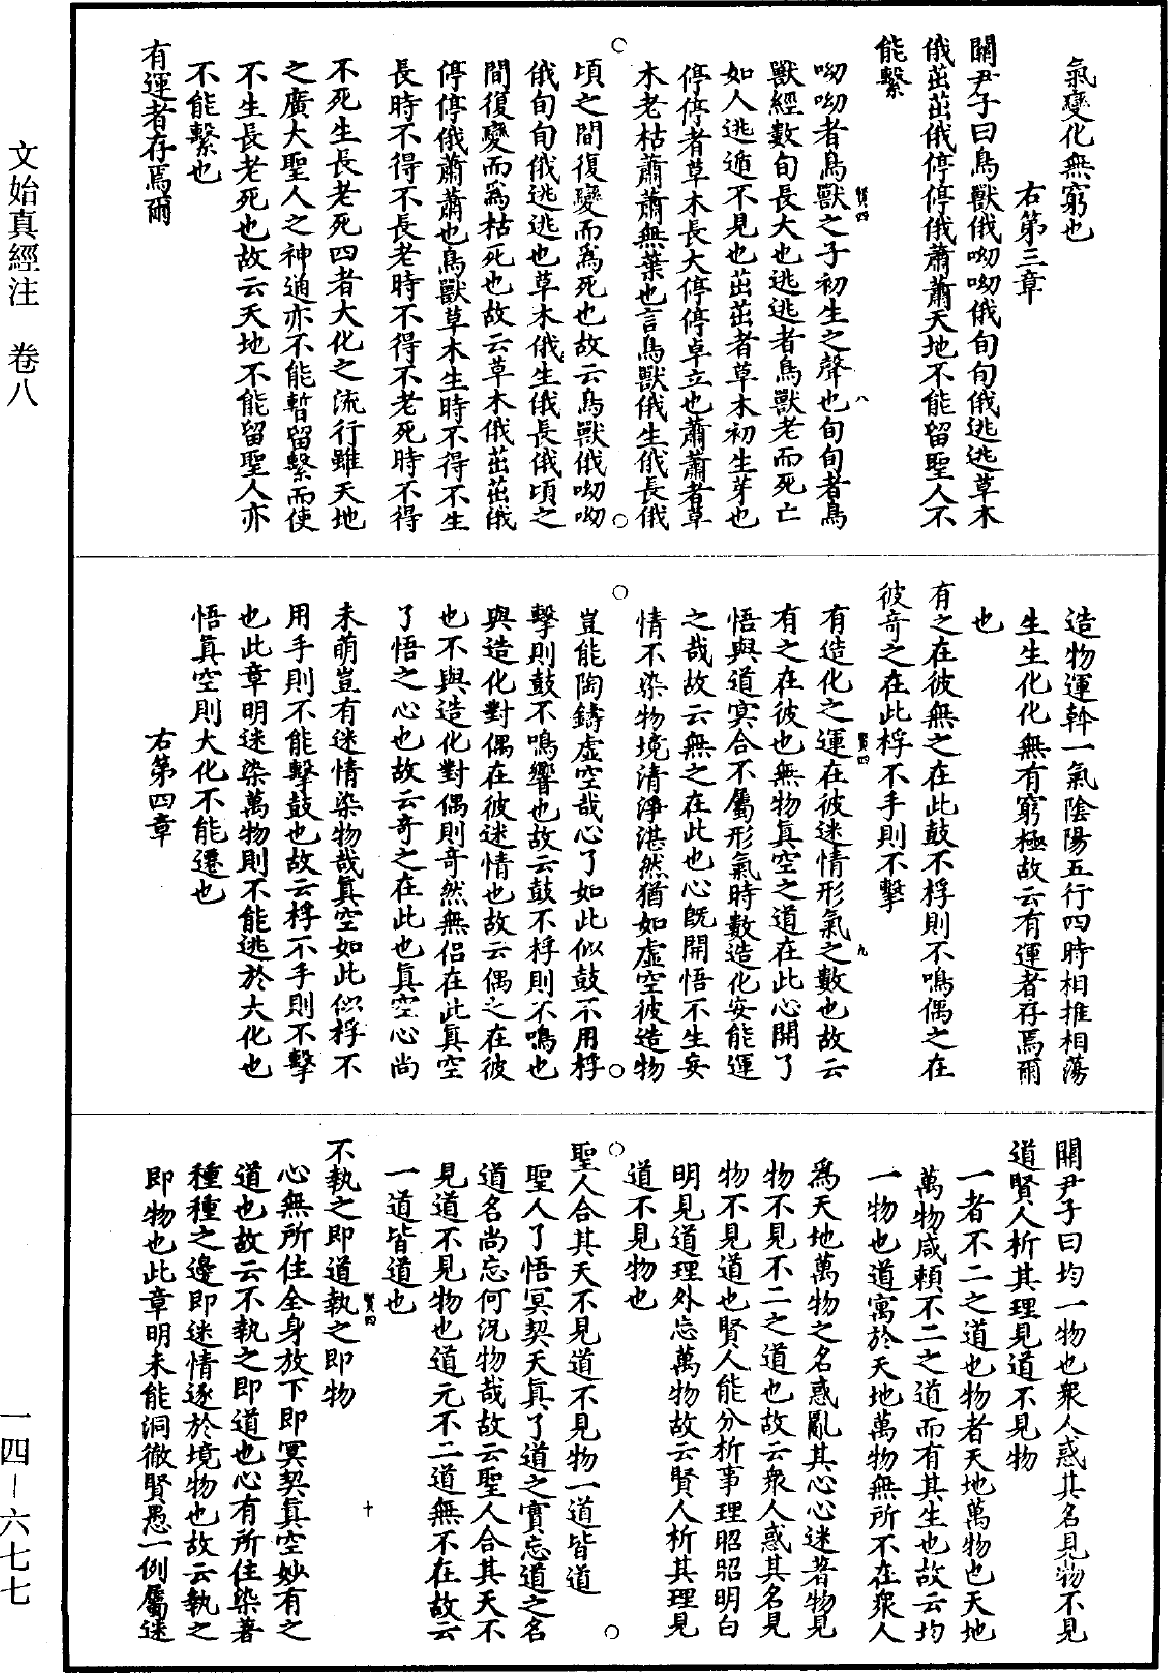 氣變化無窮也
右第三章
關尹子曰鳥獸俄呦呦俄旬旬俄逃逃草木
俄茁茁俄停停俄蕭蕭天地不能留聖人不
能繫
呦呦者鳥獸之子初生之聲也旬旬者鳥
賢四
八
獸經數旬長大也逃逃者鳥獸老而死亡
如人逃遁不見也茁茁者草木初生芽也
停停者草木長大停停卓立也蕭蕭者草
木老枯蕭蕭無葉也言鳥獸俄生俄長俄
頃之間復變而為死也故云鳥獸俄呦呦
俄旬旬俄逃逃也草木俄生俄長俄頃之
間復變而為枯死也故云草木俄茁茁俄
停停俄蕭蕭也鳥獸草木生時不得不生
長時不得不長老時不得不老死時不得
不死生長老死四者大化之流行雖天地
之廣大聖人之神通亦不能暫留繫而使
不生長老死也故云天地不能留聖人亦
不能繫也
有運者存焉爾
造物運斡一氣陰陽五行四時相推相蕩
生生化化無有窮極故云有運者存焉爾
也
有之在彼無之在此鼓不桴則不鳴偶之在
彼奇之在此桴不手則不擊
有造化之運在彼迷情形氣之數也故云
賢四
九
有之在彼也無物真空之道在此心開了
悟與道冥合不屬形氣時數造化安能運
之哉故云無之在此也心既開悟不生妄
情不染物境清淨湛然猶如虛空彼造物
豈能陶鑄虛空哉心了如此似鼓不用桴
擊則鼓不鳴響也故云鼓不桴則不鳴也
與造化對偶在彼迷情也故云偶之在彼
也不與造化對偶則奇然無侣在此真空
了悟之心也故云奇之在此也真空心尚
未萌豈有迷情染物哉真空如此似桴不
用手則不能擊鼓也故云桴不手則不擊
也此章明迷染萬物則不能逃於大化也
悟真空則大化不能遷也
右第四章
關尹子曰均一物也衆人惑其名見物不見
道賢人析其理見道不見物
一者不二之道也物者天地萬物也天地
萬物咸賴不二之道而有其生也故云均
一物也道寓於天地萬物無所不在衆人
為天地萬物之名惑亂其心心迷著物見
物不見不二之道也故云衆人惑其名見
物不見道也賢人能分析事理昭昭明白
明見道理外忘萬物故云賢人析其理見
道不見物也
聖人合其天不見道不見物一道皆道
聖人了悟冥契天真了道之實忘道之名
道名尚忘何況物哉故云聖人合其天不
見道不見物也道元不二道無不在故云
一道皆道也
不執之即道執之即物
賢四
十
心無所住全身放下即冥契真空妙有之
道也故云不執之即道也心有所住染著
種種之邊即迷情逐於境物也故云執之
即物也此章明未能洞徹賢愚一例屬迷
文始真經注　卷八
一四－六七七